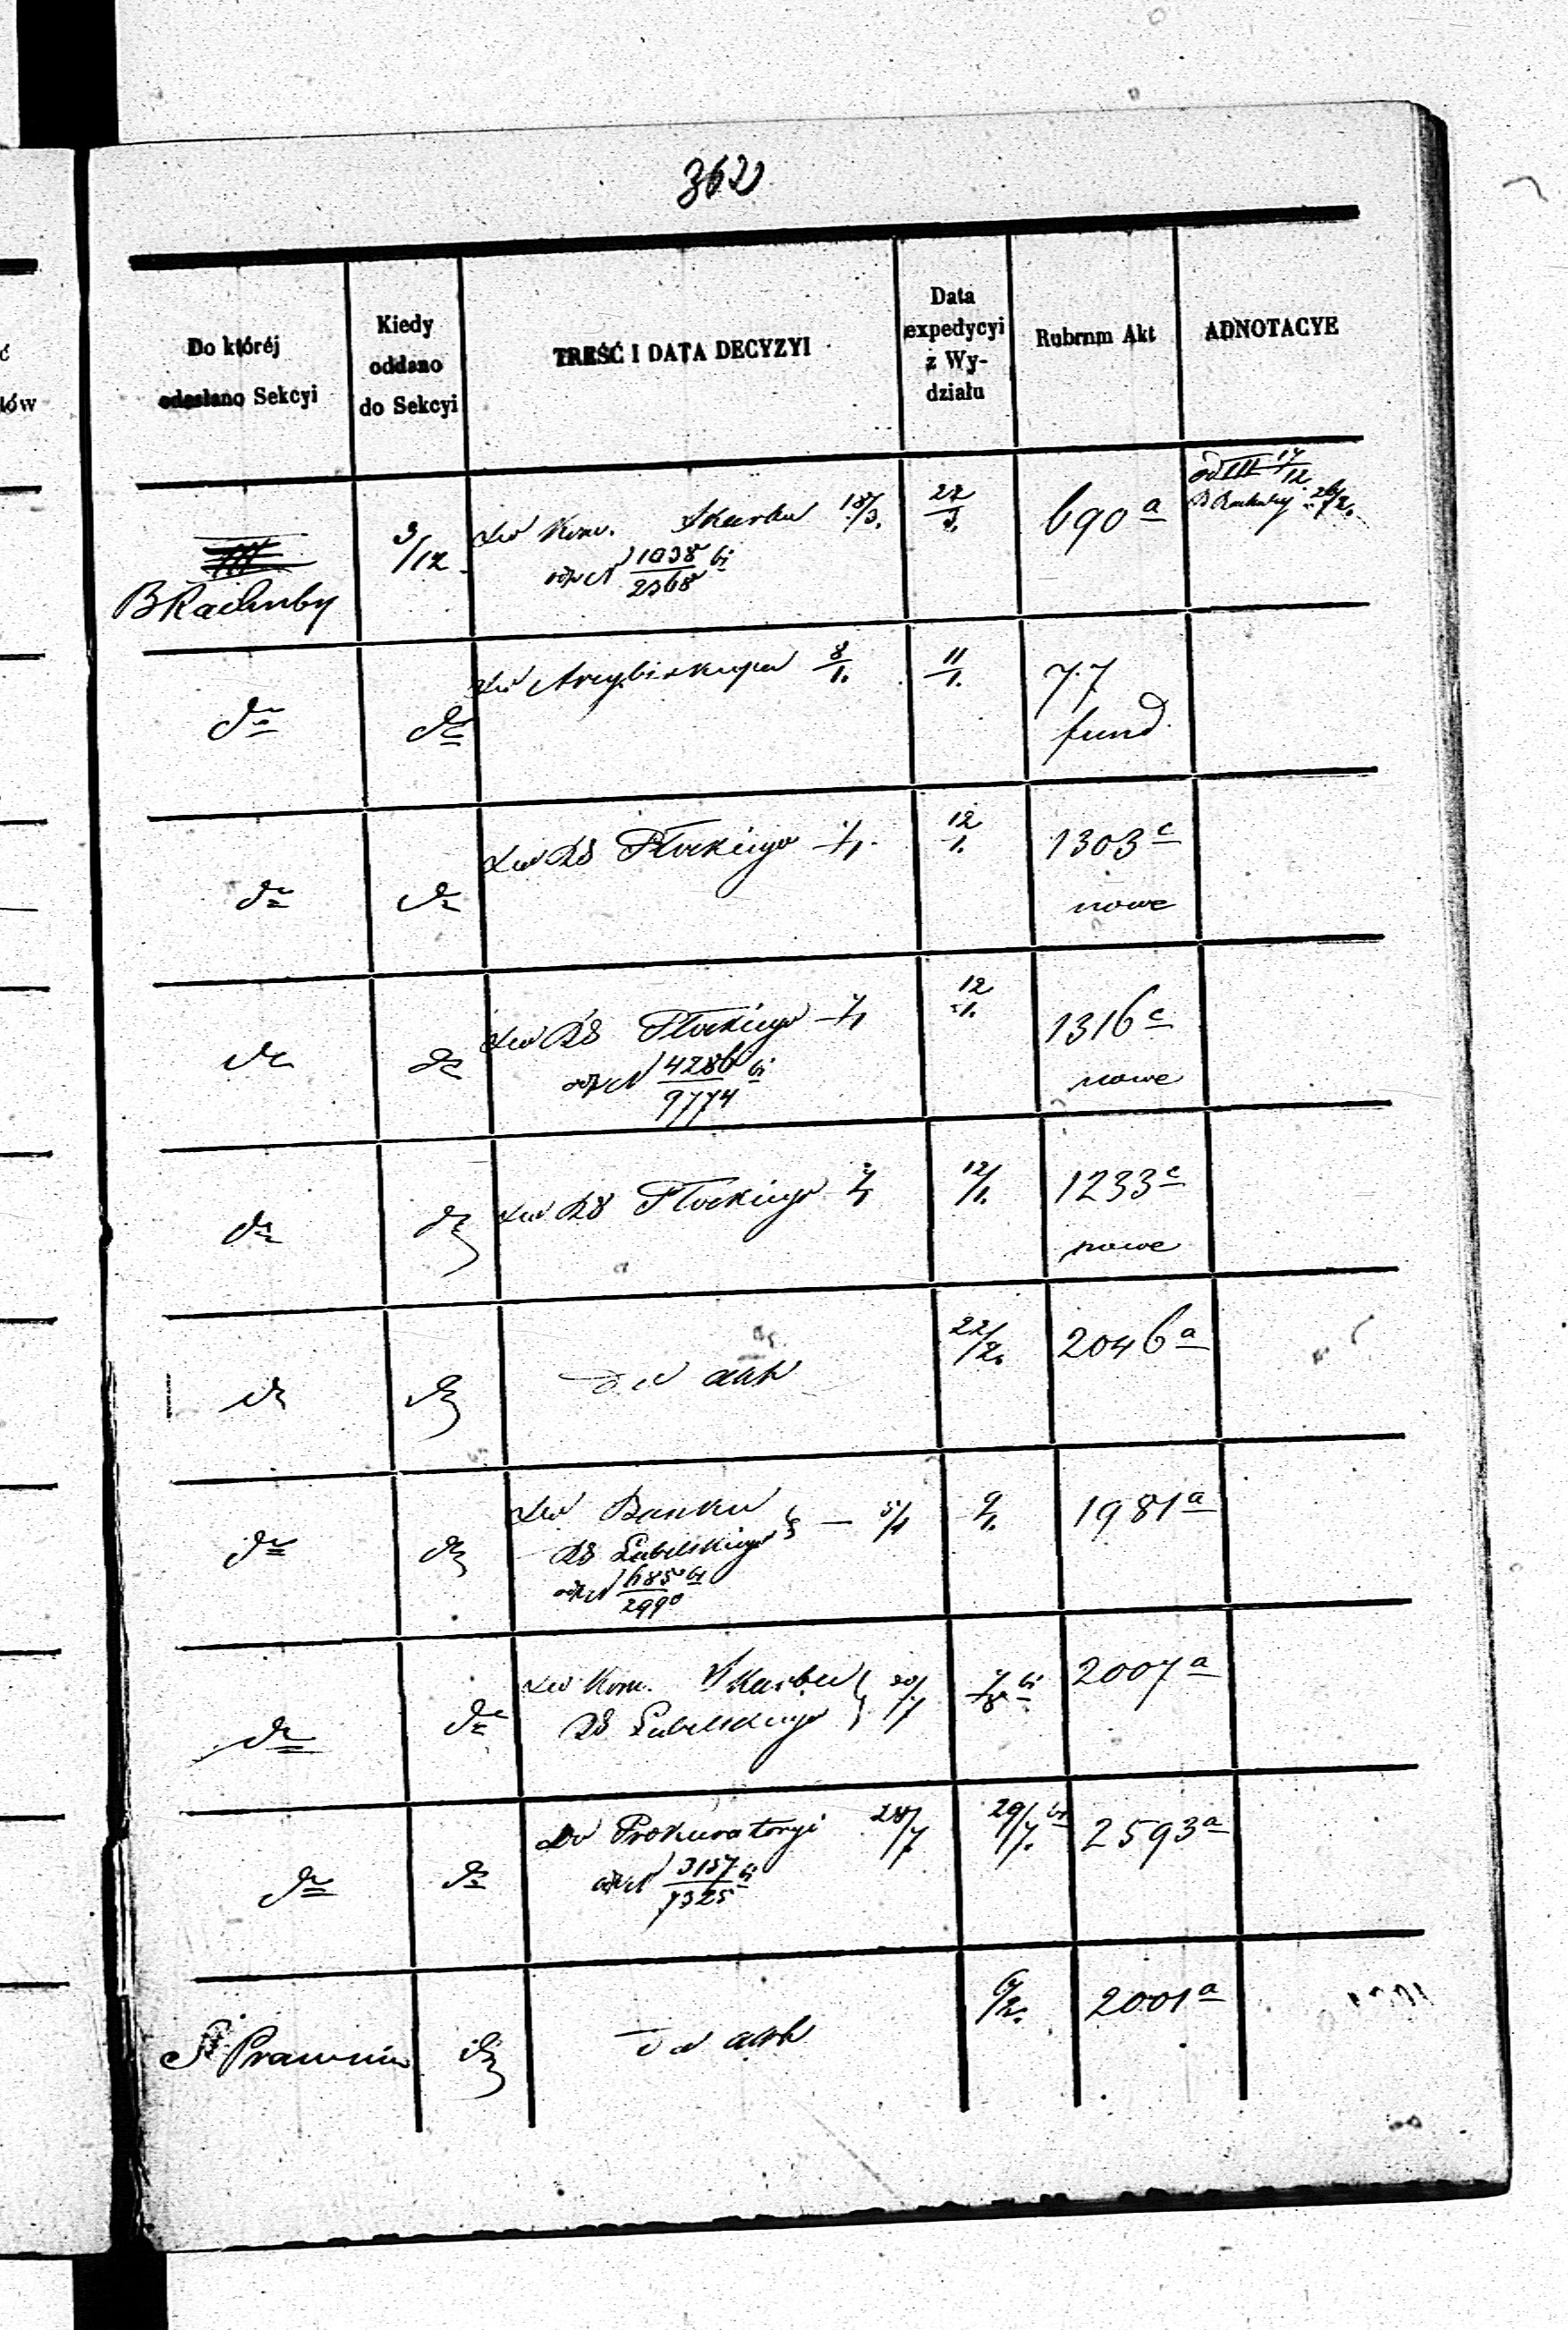 362
Do któréj
odesłano Sekcyi
Kiedy
oddano
do Sekcyi
TREŚĆ I DATA DECYZYI
Data
expedycyi
z Wy-
działu
Rubrum Akt
ADNOTACYE
B Rachuby
3/12
Do Kom. Skarbu 18/3.
odp N 1038/2368 bi
22/3.
690 a
od III 17/12
B Rachuby 26/2.
do
do
Do Arcybiskupa 8/1.
11/1.
77
fund.
do
do
Do RG Płockiego
12/1.
1303 c
nowe
do
do
Do RG Płockiego 7/1
odp N 4286/9774 bi
12/1.
1316 c
nowe
do
do
Do RG Płockiego 7/1
12/1.
1233 c
nowe
do
do
ad acta
22/2.
2046 a
do
do
Do Banku
RG Lubelskiego } — 5/1
odp N 685/2990 bi
9/1.
1981 a
do
do
Do Kom. Skarbu
RG Lubelskiego } 30/7
7/8 bi
2007 a
do
do
Do Prokuratoryi 28/7
odp N 3157/7325 bi
29/7. bi
2593 a
S Prawnéj
do
ad acta
6/2.
2001 a